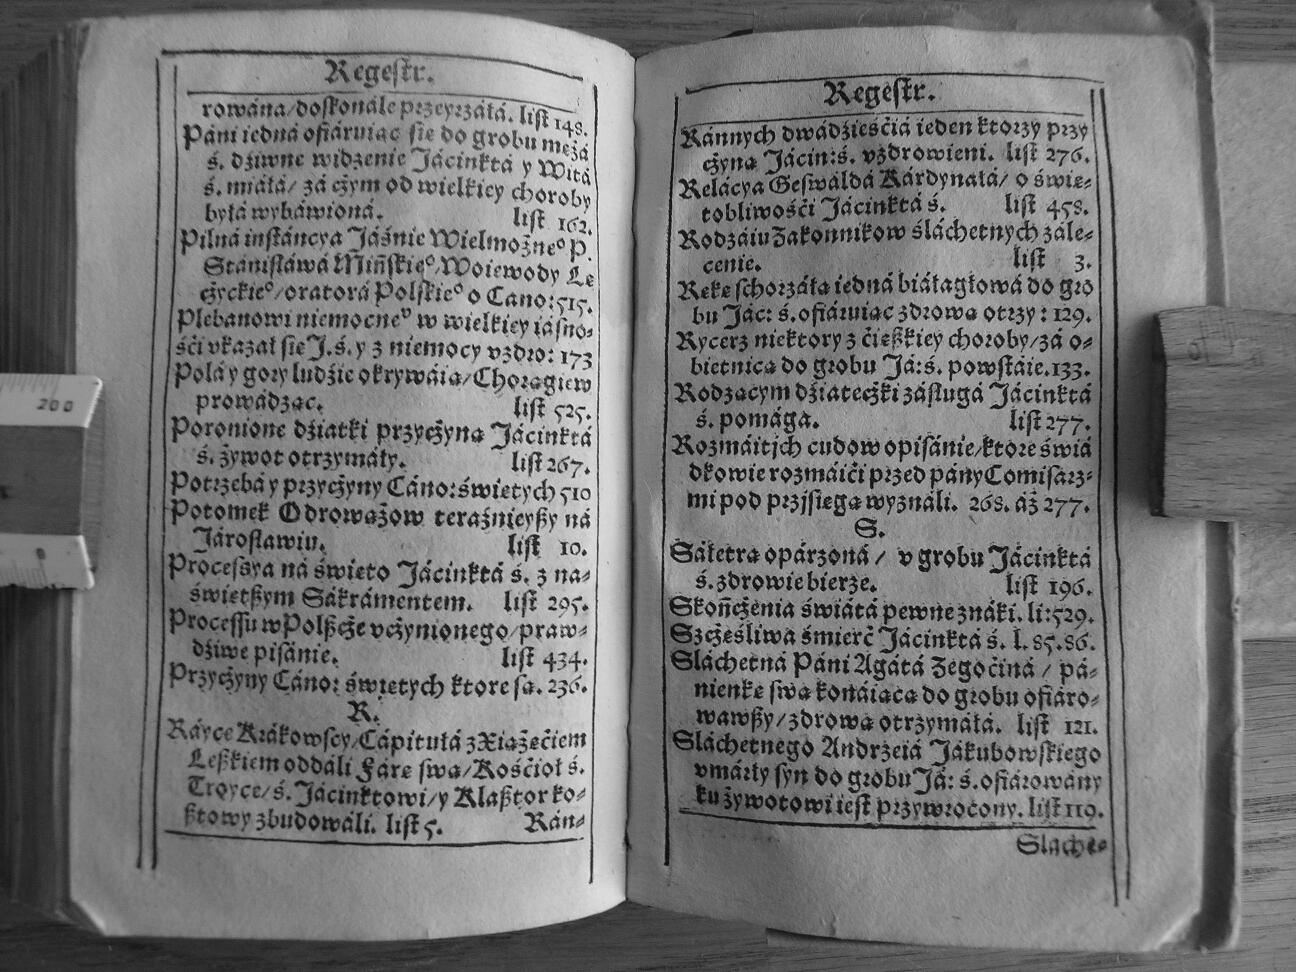 Regeſtr.
rowána/doſkonále przeyrzáłá. liſt 148.
Páni iedná ofiáruiąc ſię do grobu mężá
ś. dźiwne widzenie Jácinktá y Witá
ś. miáłá/ zá cżym od wielkiey choroby
byłá wybáwioná. liſt 162.
Pilna inſtáncya Jáśnie Wielmożneº P.
Stániſłáwá Mińſkieº/Woiewody Łę
cżyckieº/oratorá Polſkieº o Cano:515.
Plebanowi niemocneº w wielkiey iáſno⸗
śći vkazał ſię J.ś.y z niemocy vzdro: 173
Polá y gory ludźie okrywáią/Chorągiew
prowádząc. liſt 525.
Poronione dźiatki przycżyną Jácinktá
ś. żywot otrzymáły. liſt 267.
Potrzebá y przycżyny Cáno:świętych 510
Potomek Odrowążow teráźnieyßy ná
Jároſławiu. liſt 10.
Proceſsya ná święto Jácinktá ś. z na⸗
świętßym Sákrámentem. liſt 295.
Proceſſu w Polßcże vcżynionego/praw⸗
dźiwe piſánie. liſt 434.
Przycżyny Cáno: świętych ktore są. 236.
R.
Ráyce Krákowſcy/Cápitułá z Xiążęćiem
Leßkiem oddáli Fárę ſwą/Kośćioł ś.
Troyce/ś. Jácinktowi/y Klaßtor ko⸗
ßtowy zbudowáli. liſt 5.
Rán⸗
Regeſtr.
Ránnych dwádźieśćiá ieden ktorzy przy
cżyną Jácin:ś. vzdrowieni. liſt 276.
Relácya Geſwáldá Kárdynałá/ o świe⸗
tobliwośći Jácinktá ś. liſt 458.
Rodzáiu Zakonnikow śláchetnych zále⸗
cenie. liſt 3.
Rękę ſchorzáłą iedná biáłagłowá do gro
bu Jác: ś.ofiáruiąc zdrową otrzy: 129.
Rycerz niektory z ćięßkiey choroby/zá o⸗
bietnicą do grobu Já:ś. powſtáie.133.
Rodzącym dźiatecżki záſługá Jácinktá
ś. pomága. liſt 277.
Rozmáitych cudow opiſánie/ktore świá
dkowie rozmáići przed pány Comiſarz⸗
mi pod przyſięgą wyználi. 268. áż 277.
S.
Sáletrą opárzoná / v grobu Jácinktá
ś.zdrowie bierze. liſt 196.
Skońcżenia świátá pewne znáki. li:529.
Szcżęśliwa śmierć Jácinktá ś. l. 85.86.
Sláchetná Páni Agátá Żegoćiná / pá⸗
nienkę ſwą konáiącą do grobu ofiáro⸗
wawßy/zdrową otrzymáłá. liſt 121.
Sláchetnego Andrzeiá Jákubowſkiego
vmárły ſyn do grobu Já: ś.ofiárowány
ku żywotowi ieſt przywrocony. liſt 119.
Sláche⸗
200
0